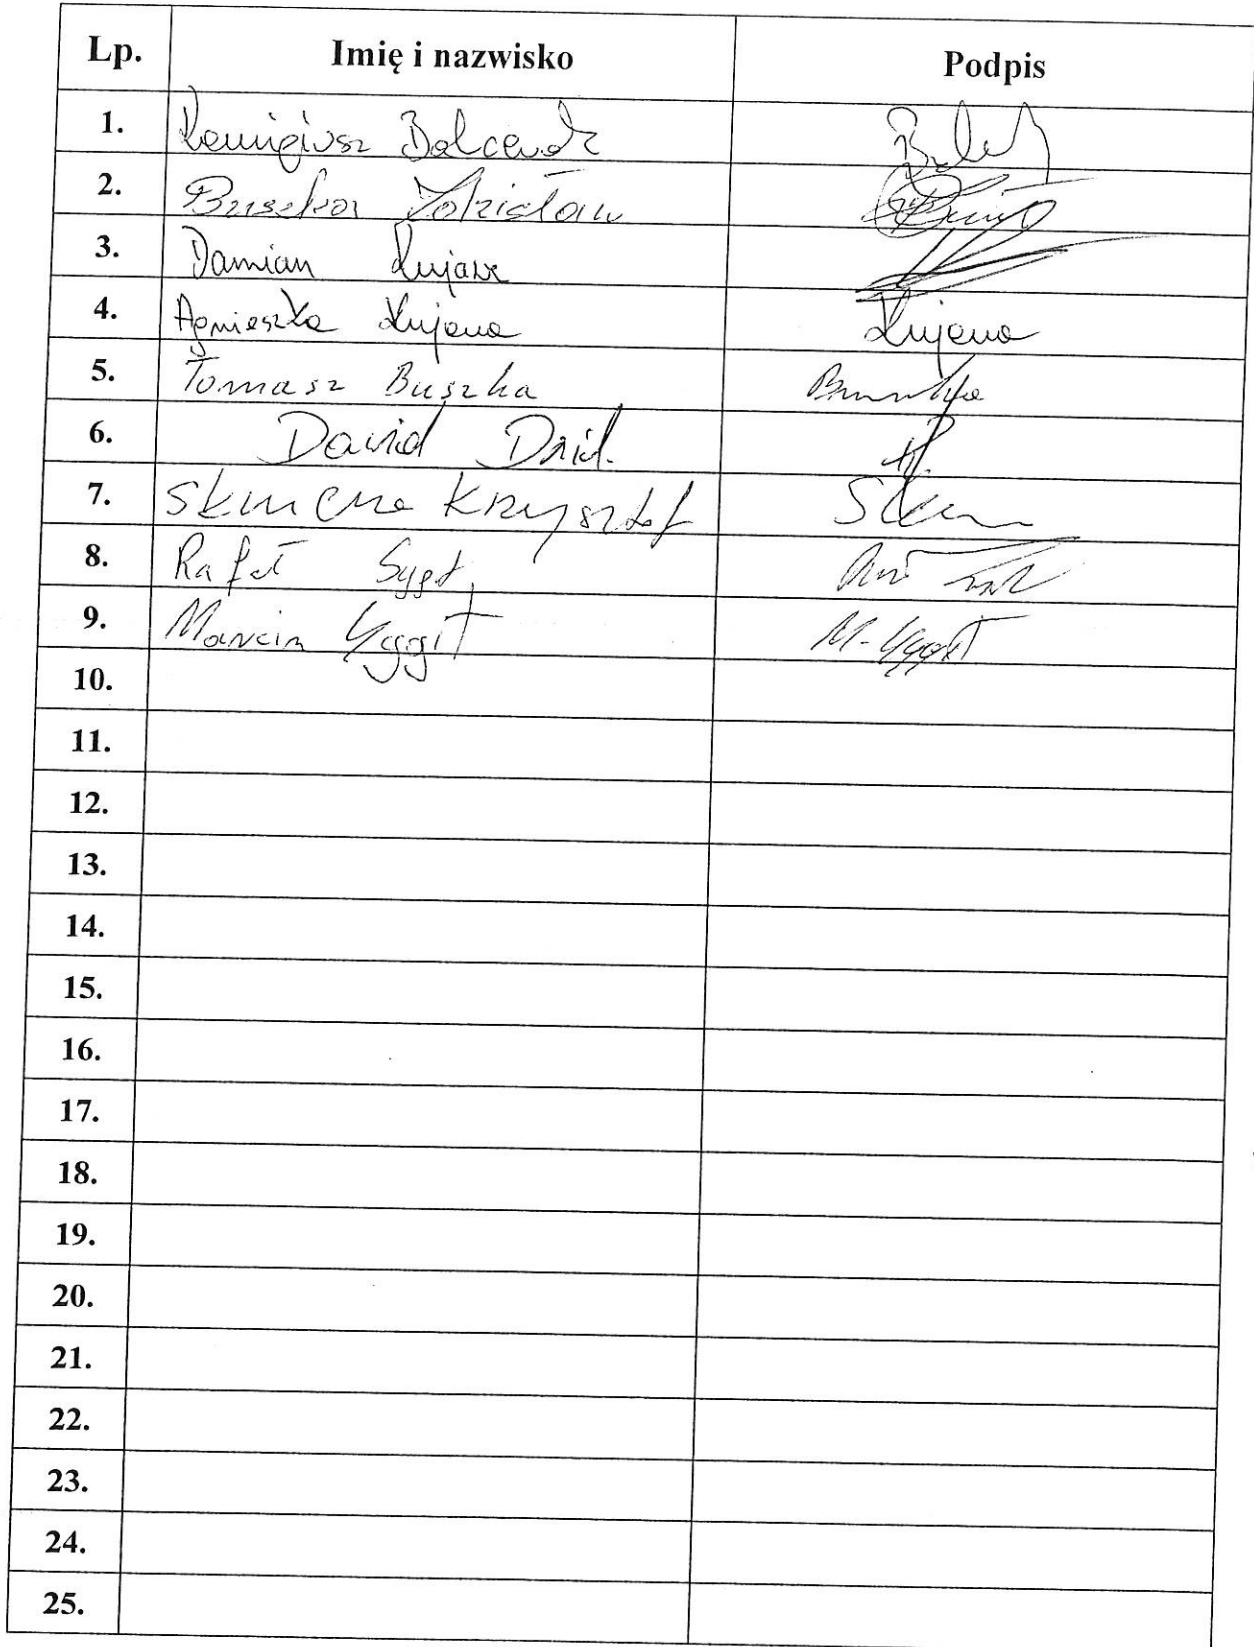 Lp. Imię i nazwisko Podpis
1. Remigiusz Balcerak
2. Buszka Zdzisław
3. Damian Kujawa
4. Agnieszka Kujawa Kujawa
5. Tomasz Buszka Buszka
6. Dawid
7. Krzysztof
8. Rafał
9. Marcin Yggit M. Yggit
10.
11.
12.
13.
14.
15.
16.
17.
18.
19.
20.
21.
22.
23.
24.
25.